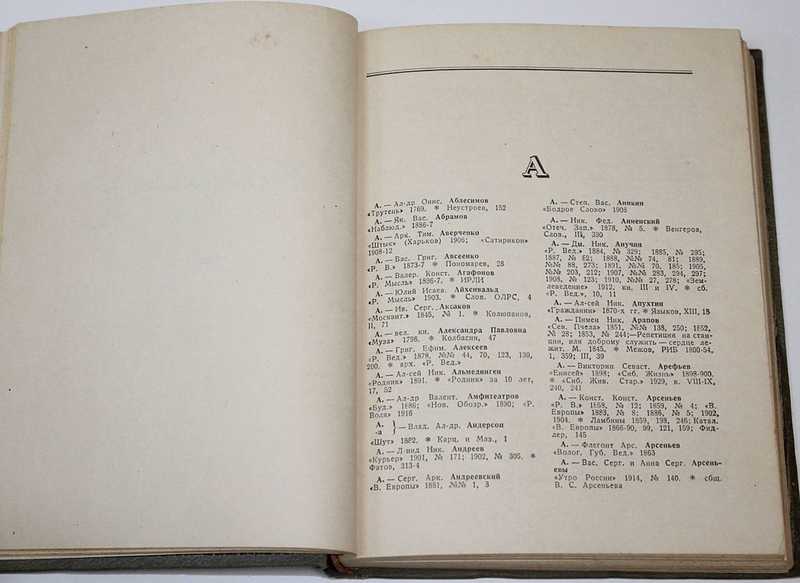 А
А. — Ал-др Онис. Аблесимов
«Трутень» 1769. * Неустроев, 152
А. — Як. Вас. Абрамов
«Наблюд.» 1886-7
А. — Арк. Тим. Аверченко
«Штык» (Харьков) 1906; «Сатирикон»
1908-12
А. — Вас. Григ. Авсеенко
«Р. В.» 1873-7 * Пономарев, 28
А. — Валер. Конст. Агафонов
«Р. Мысль» 1896-7. * ИРЛИ
А. — Юлий Исаев. Айхенвальд
«Р. Мысль» 1903. * Слов. ОЛРС, 4
А. — Ив. Серг. Аксаков
«Москвит.» 1845, № 1. * Колюпанов,
II, 71
А. — вел. кн. Александра Павловна
«Муза» 1796. * Колбасин, 47
А. — Григ. Ефим. Алексеев
«Р. Вед.» 1879, №№ 44, 70, 123, 130,
200. * арх. «Р. Вед.»
А. — Ал-сей Ник. Альмединген
«Родник» 1891. * «Родник» за 10 лет,
17, 52
А. — Ал-др Валент. Амфитеатров
«Буд.» 1886; «Нов. Обозр.» 1890; «Р.
Воля» 1916
А.
-а } — Влад. Ал-др. Андерсон
«Шут» 1882. * Карц. и Маз., 1
А. — Л-нид Ник. Андреев
«Курьер» 1901, № 171; 1902, № 305. *
Фатов, 313-4
А. — Серг. Арк. Андреевский
«В. Европы» 1881, №№ 1, 3
А. — Степ. Вас. Аникин
«Бодрое Слово» 1908
А. — Ник. Фед. Анненский
«Отеч. Зап.» 1878, № 5. * Венгеров,
Слов., III, 390
А. — Дм. Ник. Анучин
«Р. Вед.» 1884, № 329; 1885, № 295;
1887, № 62; 1888, №№ 74, 81; 1889,
№№ 88, 273; 1891, №№ 70, 185; 1905,
№№ 203, 212; 1907, №№ 283, 294, 297;
1908, № 123; 1910, №№ 27, 278; «Зем-
леведение» 1912, кн. III и IV. * сб.
«Р. Вед.», 10, 11
А. — Ал-сей Ник. Апухтин
«Гражданин» 1870-х гг. * Языков, XIII, 18
А. — Пимен Ник. Арапов
«Сев. Пчела» 1851, №№ 138, 250; 1852,
№ 28; 1853, № 244; — Репетиция на стан-
ции, или доброму служить — сердце ле-
жит. М. 1845. * Межов, РИБ 1800-54,
1, 359; III, 39
А. — Викторин Севаст. Арефьев
«Енисей» 1898; «Сиб. Жизнь» 1898-900.
* «Сиб. Жив. Стар.» 1929, в. VIII-IX,
240, 241
А. — Конст. Конст. Арсеньев
«Р. В.» 1858, № 12; 1859, № 4; «В.
Европы» 1883, № 8; 1886, № 5; 1902,
1904. * Ламбины 1859, 198, 246; Катал.
«В. Европы» 1866-90, 99, 121, 159; Фид-
лер, 145
А. — Флегонт Арс. Арсеньев
«Волог. Губ. Вед.» 1863
А. — Вас. Серг. и Анна Серг. Арсень-
евы
«Утро России» 1914, № 140. * сбщ.
В. С. Арсеньева